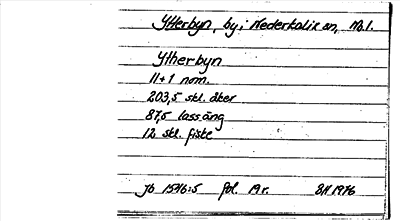 Ytterbyn, by i Nederkalix sn, No.1.
Ytherbyn
11+1 nom.
203,5 skl. åker
87,5 lass äng
12 skl. fiske
Jb 1546:5 fol. 19 r. BH 1976